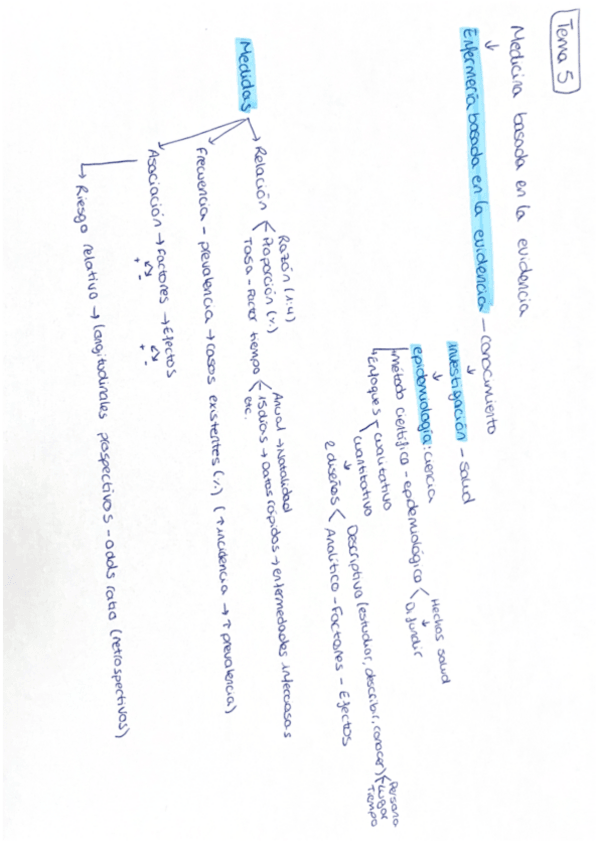 Tema 5
Medicina basada en la evidencia
↓
Enfermería basada en la evidencia - conocimiento
↓
investigación - salud
↓
epidemiología: ciencia
método científico - epidemiológico < Hechos salud ↓ Difundir
↳ Enfoques < cualitativo
cuantitativo
↓
2 diseños < Descriptiva (estudiar, describir, conocer) < Persona Lugar Tiempo
Analítico - Factores - Efectos
Medidas
→ Relación < Razón (1:4)
Proporción (%)
Tasa - Factor tiempo < Anual → Natalidad
15 días → Datos rápidos → enfermedades infecciosas
etc.
Frecuencia - prevalencia → casos existentes (%) (↑ incidencia → ↑ prevalencia)
Asociación → Factores → Efectos
+ - + -
↳ Riesgo relativo → longitudinales prospectivos - odds ratio (retrospectivos)